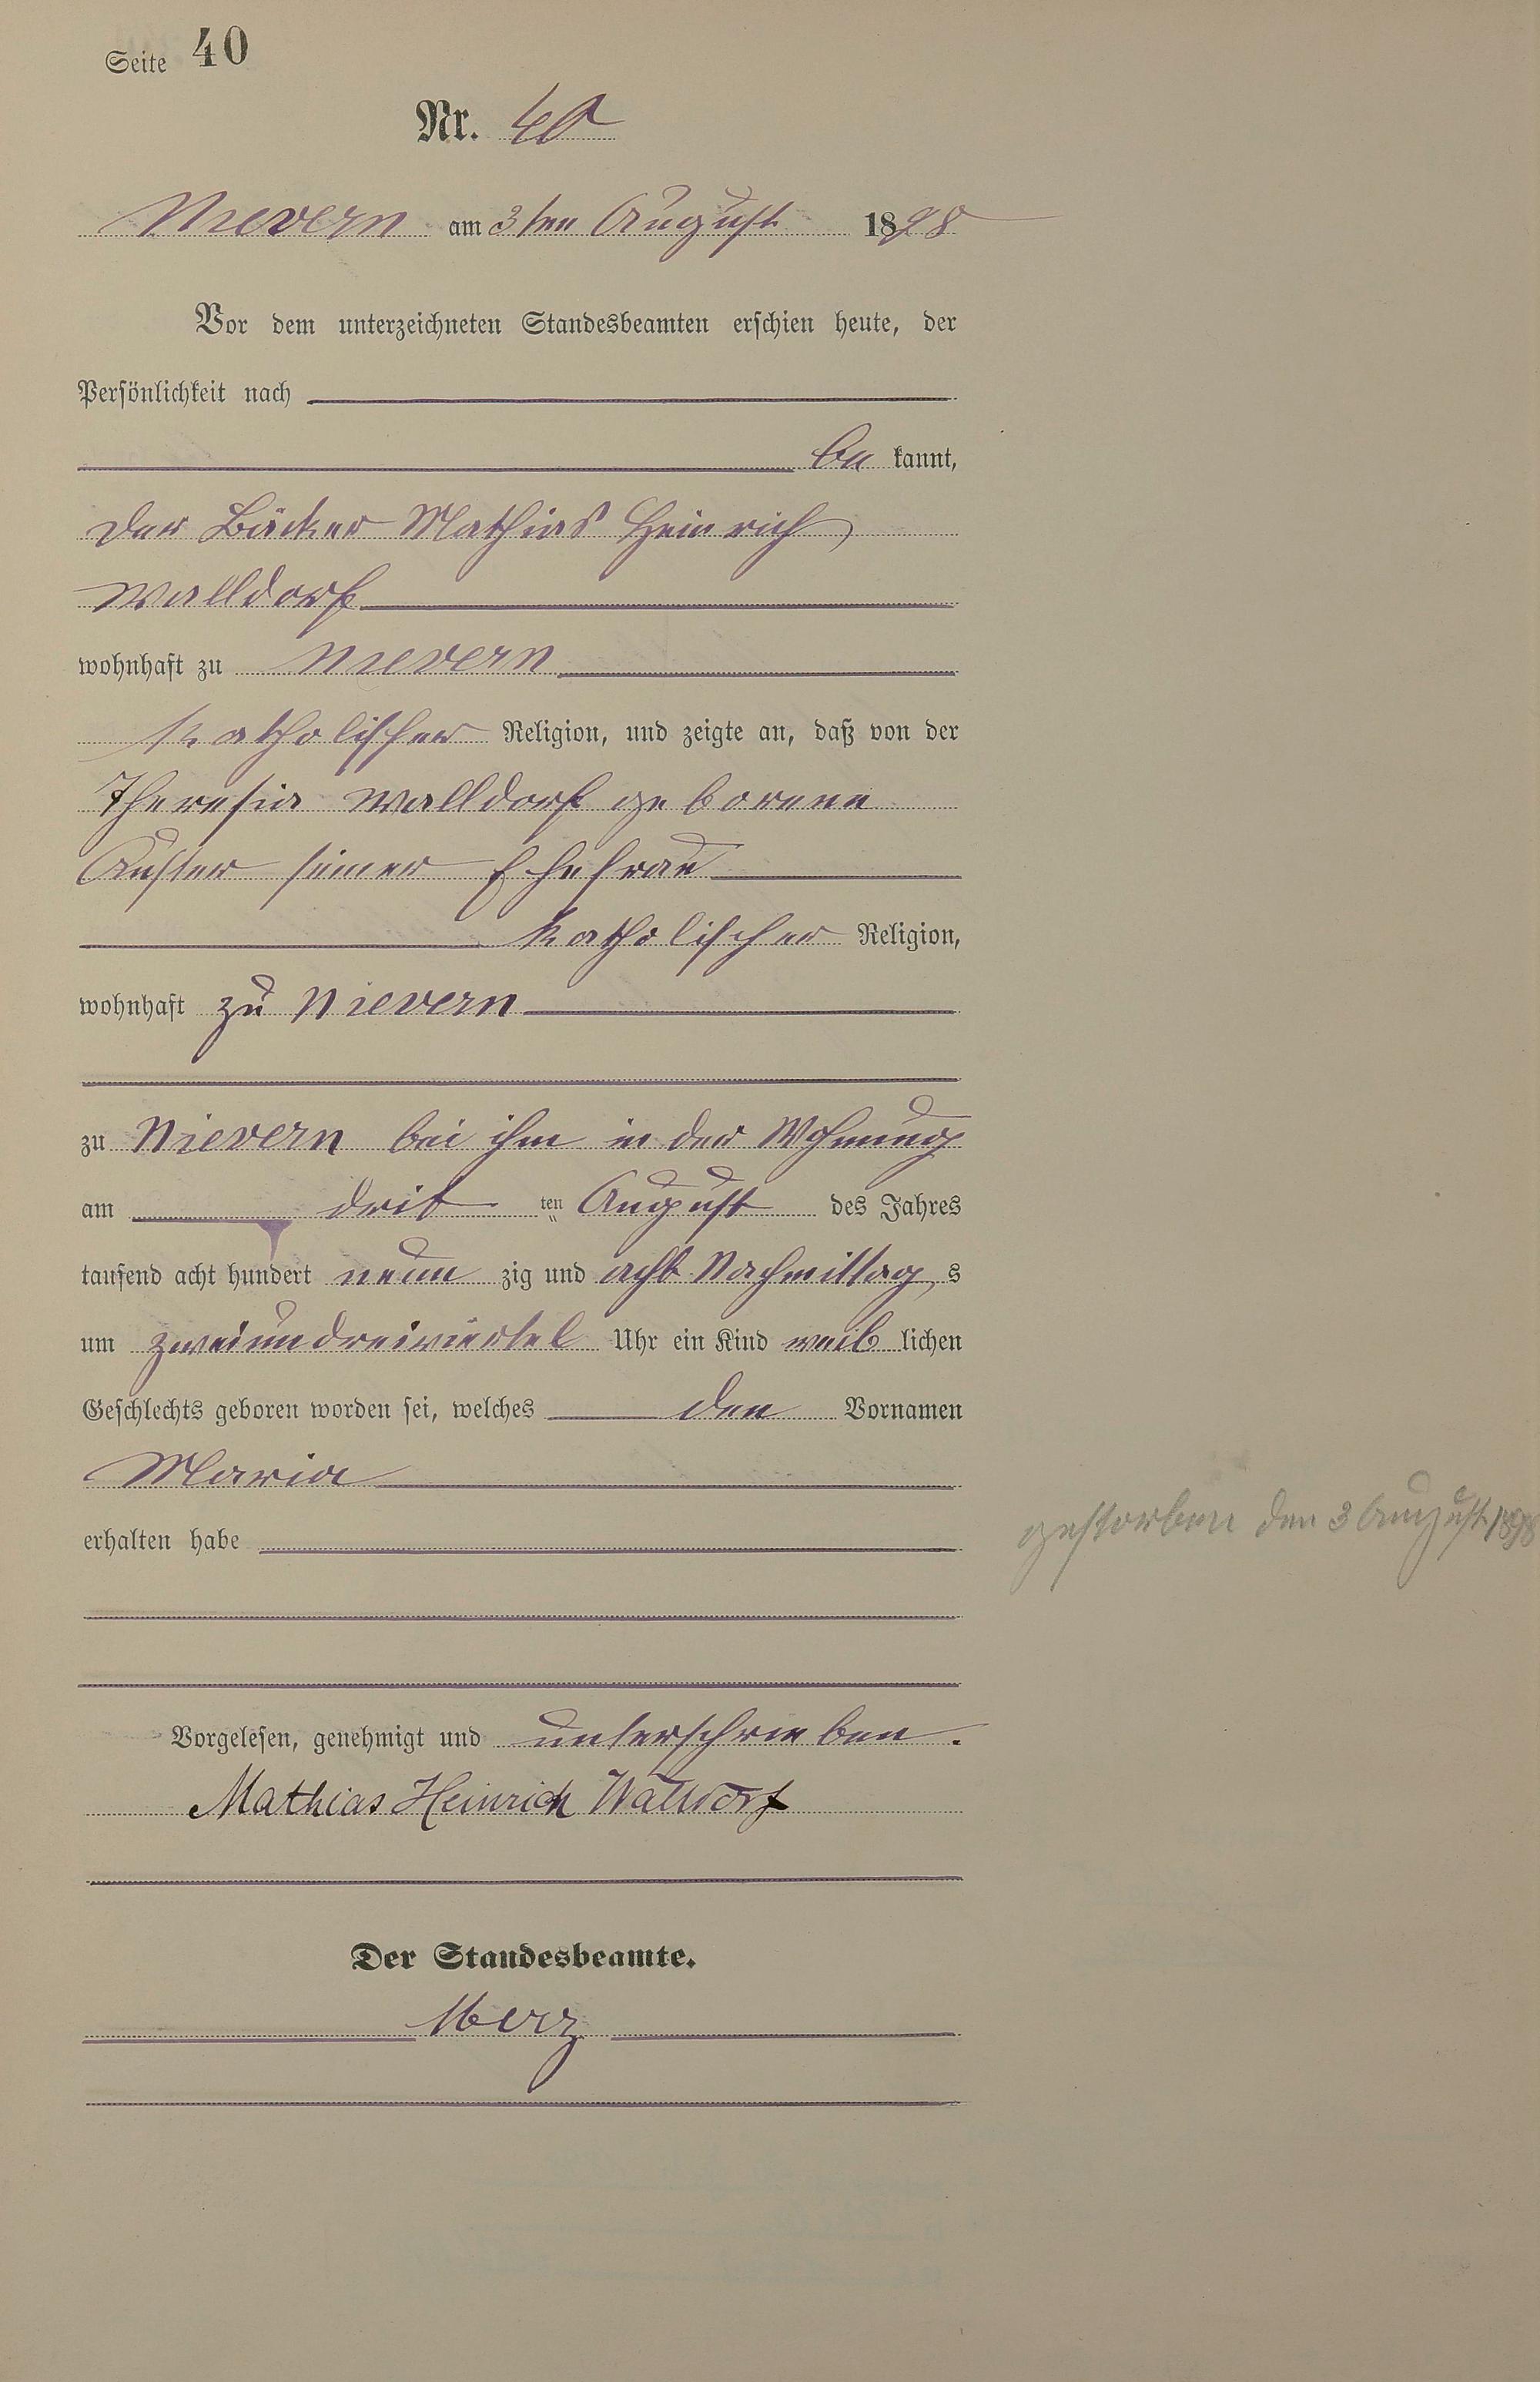 Seite 40
Nr. 40
Nievern am 3ten August 1898
Vor dem unterzeichneten Standesbeamten erschien heute, der
Persönlichkeit nach
be kannt,
der Bäcker Mathias Heinrich
Walldorf
wohnhaft zu Nievern
katholischer Religion, und zeigte an, daß von der
Theresia Walldorf geborene
seiner Ehefrau
katholischer Religion,
wohnhaft zu Nievern
zu Nievern bei ihm in der Wohnung
am drit ten August des Jahres
tausend acht hundert neun zig und acht Nachmittag s
um zweiundreiviertel Uhr ein Kind weib lichen
Geschlechts geboren worden sei, welches den Vornamen
Maria
erhalten habe
gestorben den 3 August 1898
Vorgelesen, genehmigt und unterschrieben.
Mathias Heinrich Walldorf
Der Standesbeamte.
Merz